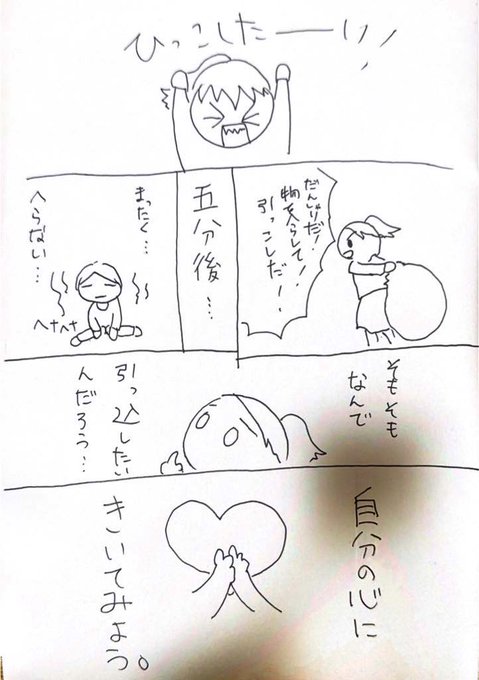 ひっこしたーい!
だんしゃりだ!
物をへらして!
引っこしだー!
五分後…
まったく…
へらない…
ヘナヘナ
そもそも
なんで
引っ込したい
んだろう…
自分の心に
きいてみよう。